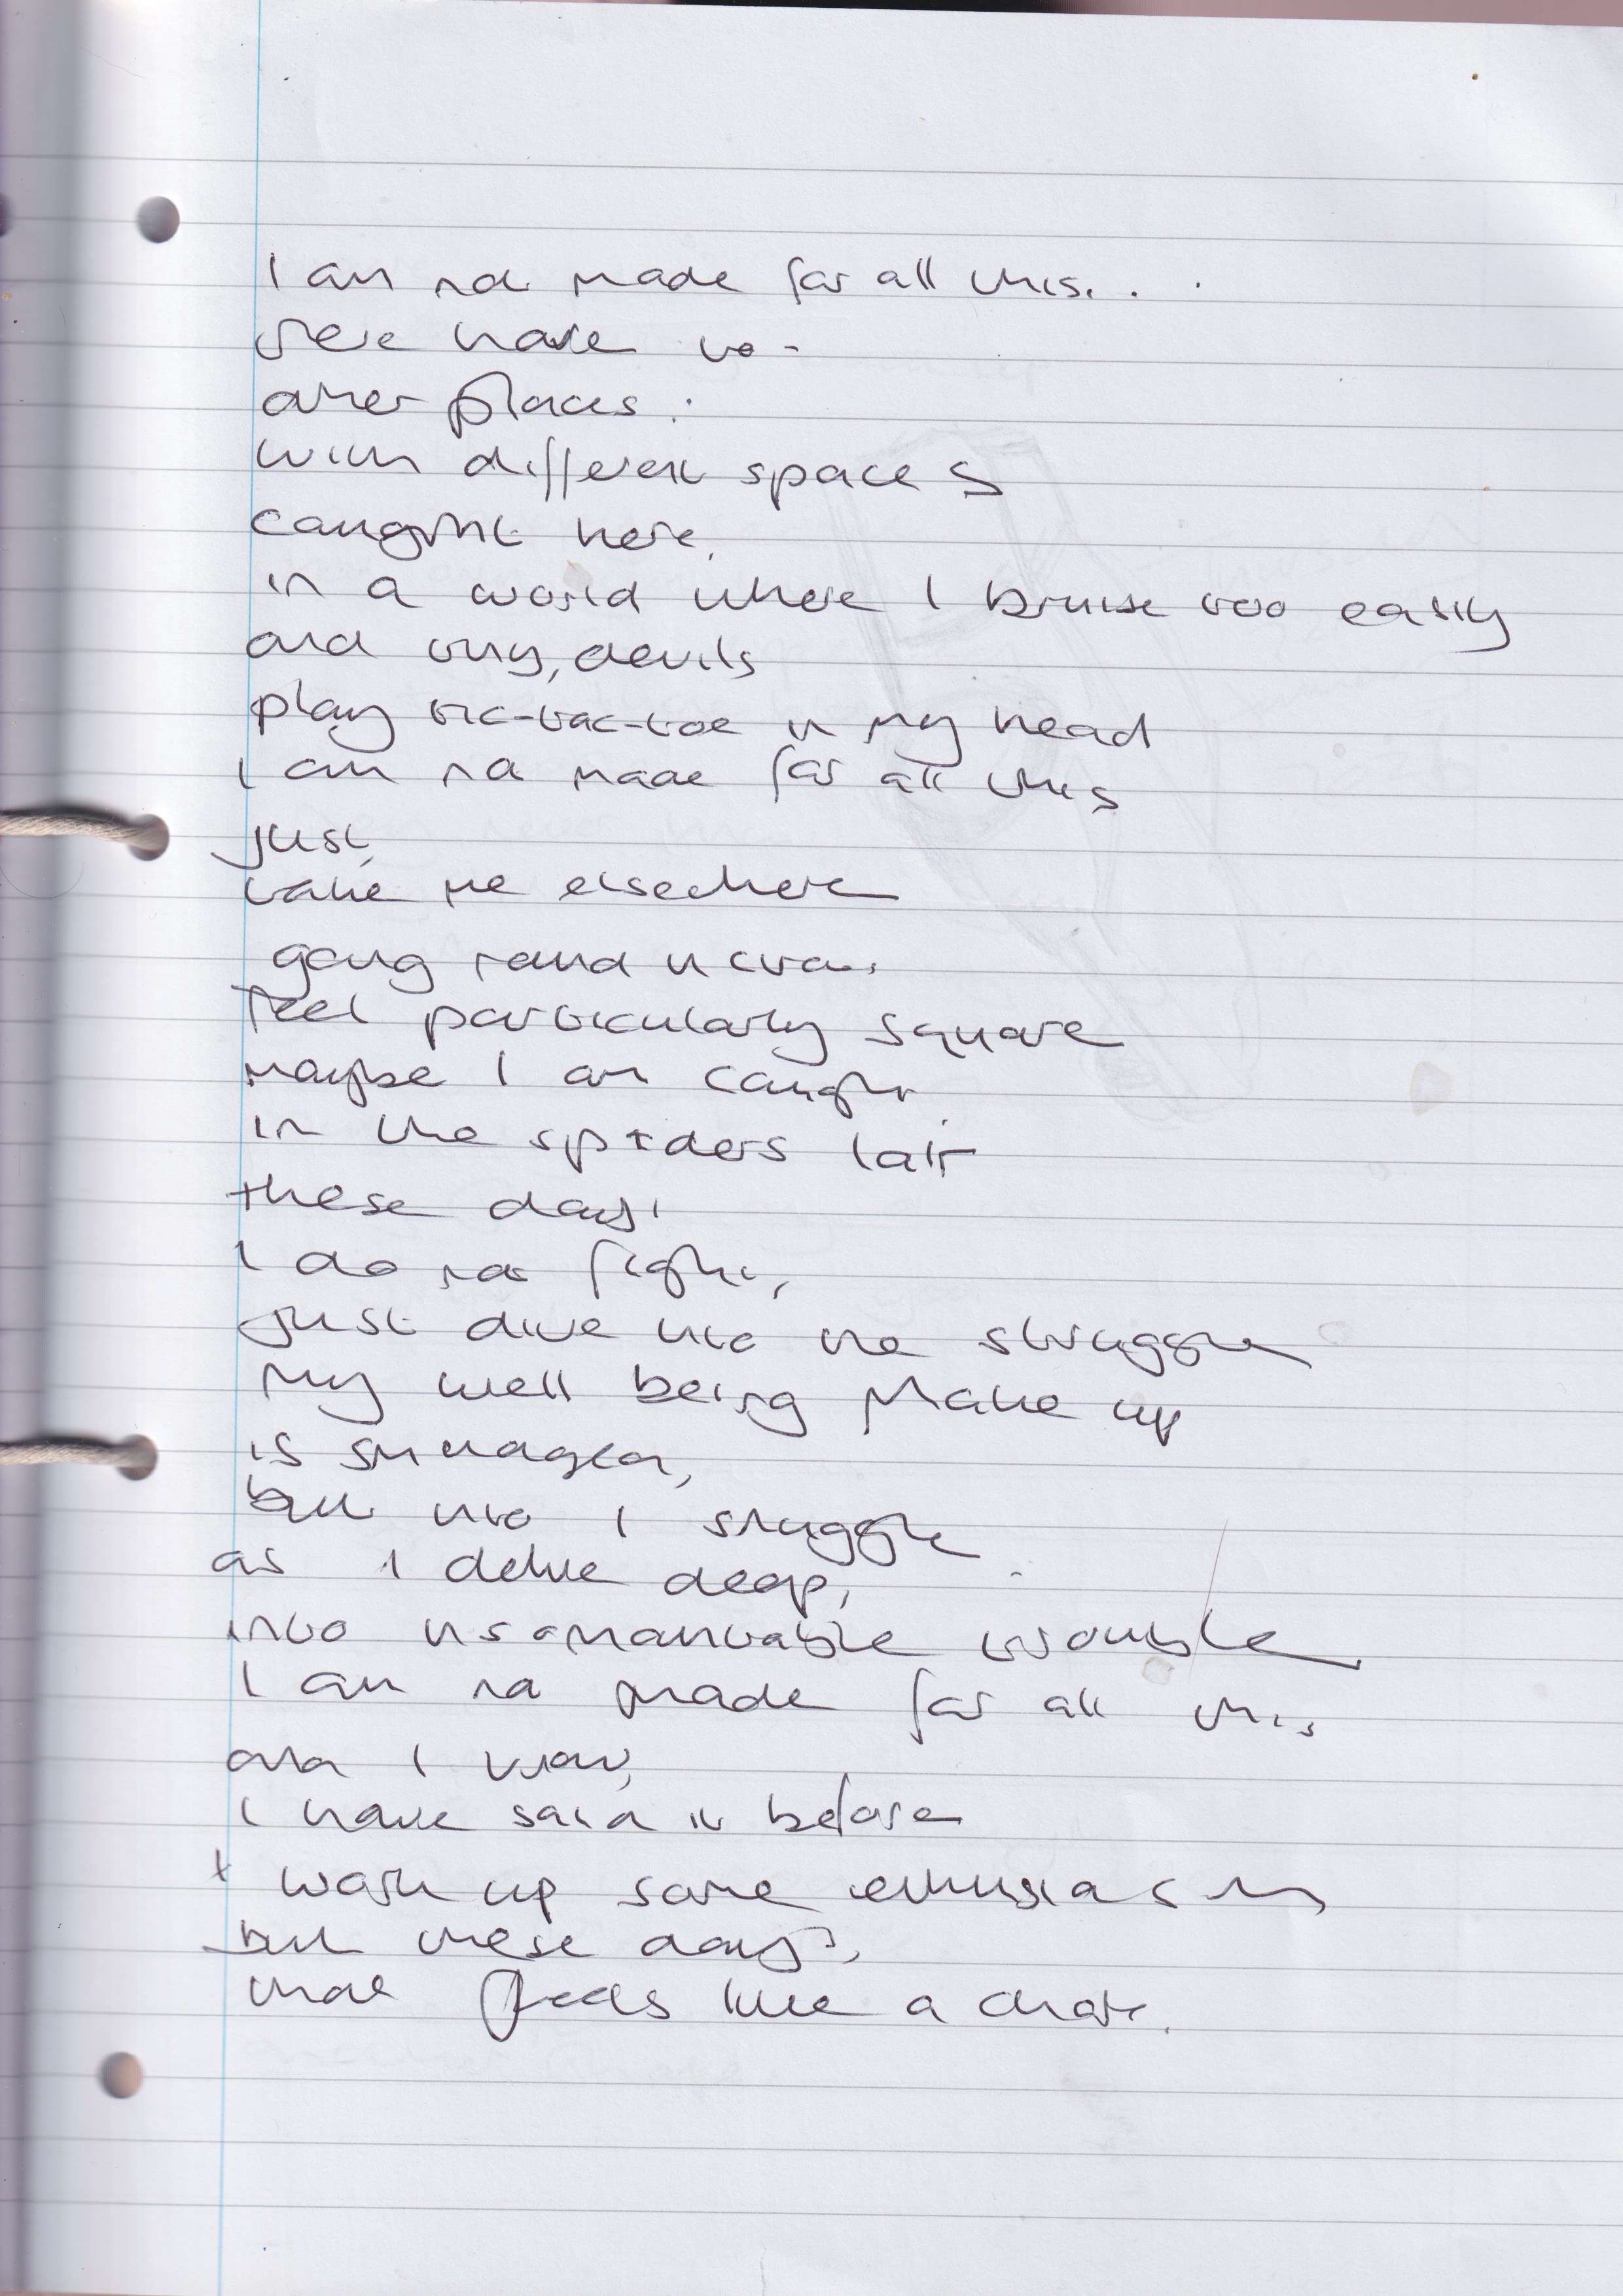 I am not made for all this. . .
there have to -
other places.
with different spaces
caught here,
in a world where I bruise too easily
and tiny, devils
play tic-tac-toe in my head
I am not made for all this
just,
take me elsewhere
going round in
feel particularly square
maybe I am caught
in the spiders lair
these days,
I do not fight,
just dive into the struggle
My well being Make up
is
but into I snuggle
as I delve deep,
into trouble
I am not made for all this
and I know,
I have said it before
I wash up some enthusiasm
but these days,
that feels like a chore.